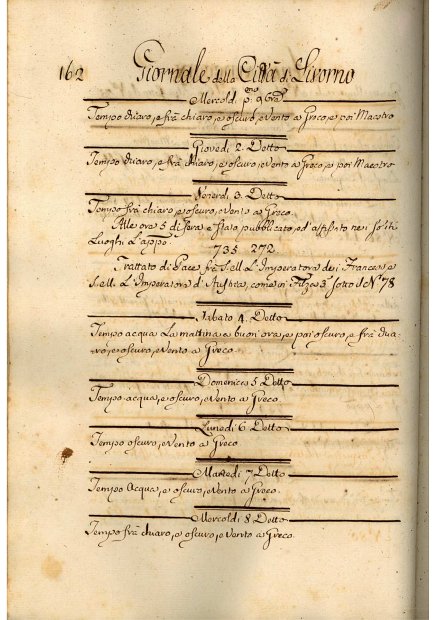 162 Giornale della Città di Livorno
Mercoldi p.mo 9bre
Tempo chiaro, e frà chiaro, e oscuro, e Vento a Greco, e poi Maestro
Giovedi 2. Detto
Tempo chiaro, e frà chiaro, e oscuro, e Vento a Greco, e poi Maestro
Venerdi 3. Detto
Tempo frà chiaro, e oscuro, e Vento a Greco.
Alle ore 5 di sera è stato pubblicato, ed affisso nei soliti
Luoghi L'appo:
735. 272.
Trattato di Pace frà S. ell. L'Imperatore dei Francesi e
S. ell. L'Imperatore d'Austria, come in Filza 3 sotto S N.º 78
Sabato 4. Detto
Tempo acqua La mattina a buon'ora, e poi oscuro, e frà chia-
ro, e oscuro, e Vento a Greco
Domenica 5 Detto
Tempo acqua, e oscuro, e Vento a Greco.
Lunedi 6 Detto
Tempo oscuro, e Vento a Greco
Martedi 7 Detto
Tempo Acqua, e oscuro, e Vento a Greco.
Mercoldi 8 Detto
Tempo frà chiaro, e oscuro, e Vento a Greco.